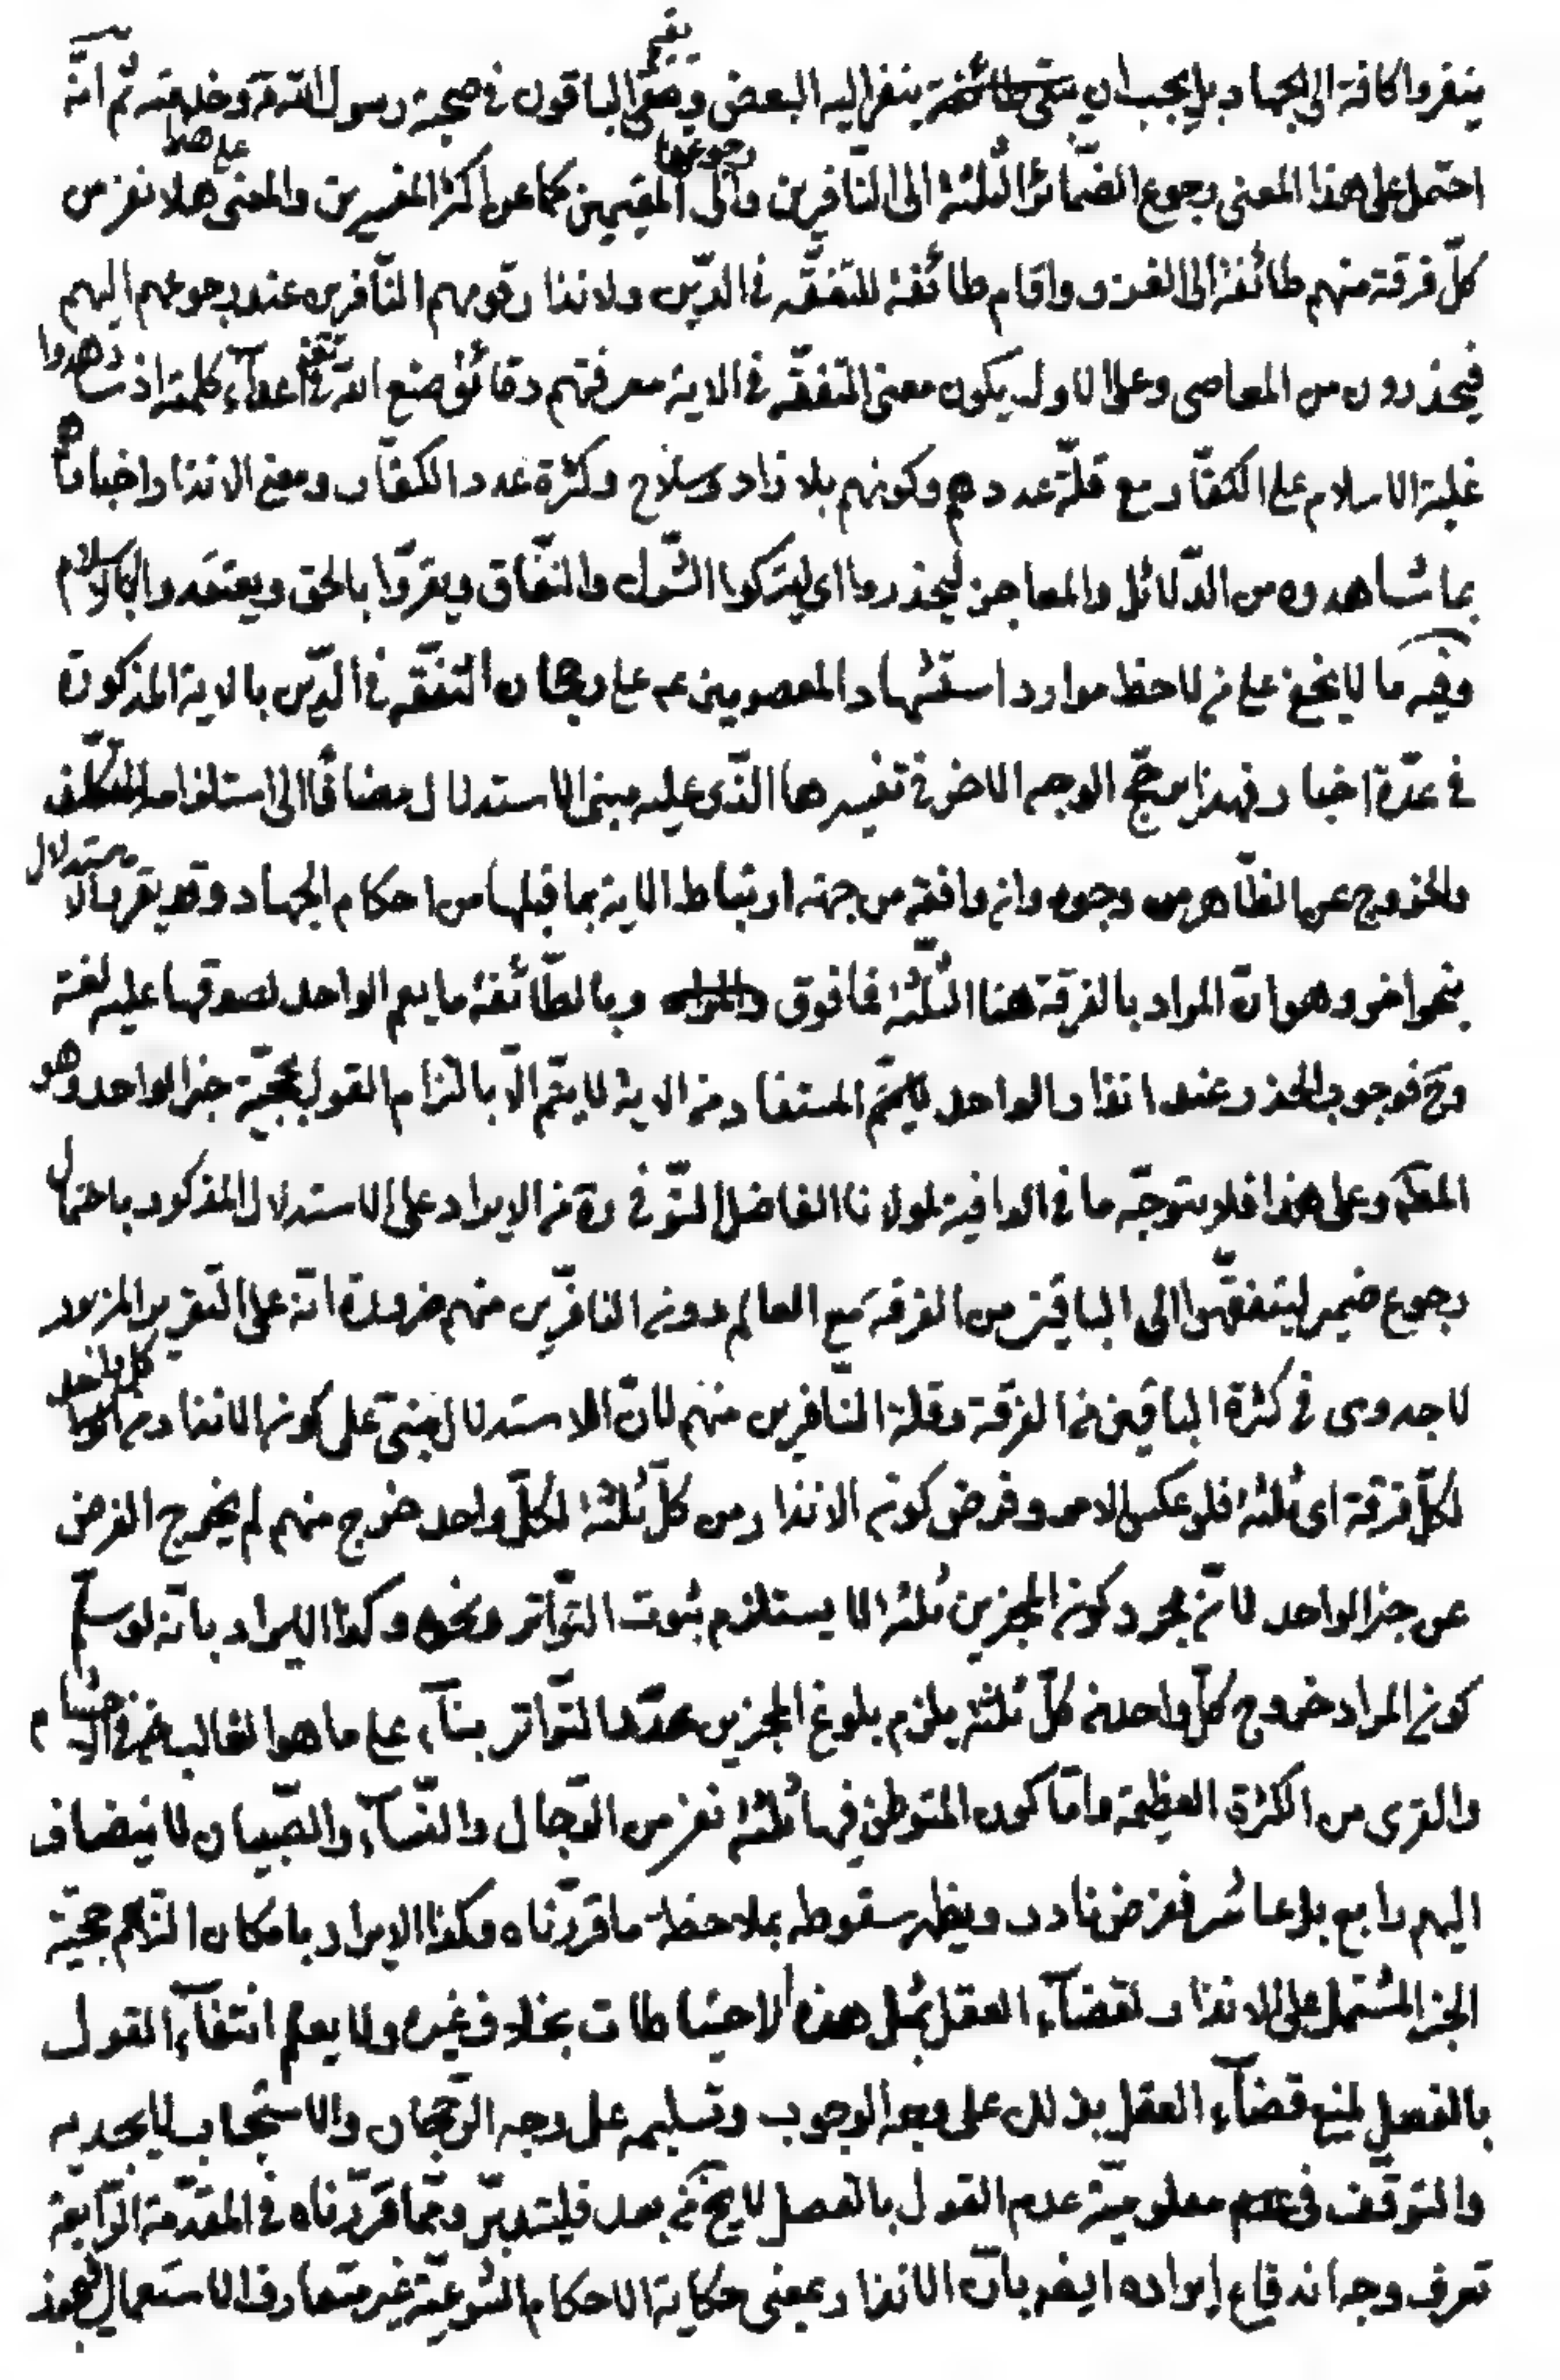 ينفروا كافة الى الجهاد بل يجب ان ينفر اليه البعض ويقيم الباقون في صحبة رسول الله ص وخدمته ثم انّه
احتمل على هذا المعنى رجوع الضّمائر الثّلثة الى النّافرين ورجوعها الى المقيمين كما عن اكثر المفسرين والمعنى على هذا هلا نفر من
كلّ فرقة منهم طائفة الى الغزو واقام طائفة للتفقّه في الدّين ولانذار قومهم النّافرين عند رجوعهم اليهم
فيحذرون من المعاصى وعلى الاول يكون معنى التفقّه في الاية معرفتهم دقائق صنع الله تع في اعلاء كلمته اذ شاهدوا
غلبة الاسلام على الكفّار مع قلّة عددهم وكونهم بلا زاد وسلاح وكثرة عدد الكفّار ومعنى الانذار اخبارهم
بما شاهدوه من الدّلائل والمعاجز ليحذروا اى ليتركوا الشّرك والنّفاق ويقرّوا بالحق ويعتقدوا بالاسلام
وفيه ما لا يخفى على من لاحظ موارد استشهاد المعصومين عم على رجحان التفقّه في الدّين بالاية المذكورة
في عدّة اخبار فهذا مرجّح الوجه الاخر في تفسيرها الّذى عليه مبنى الاستدلال مضافا الى استلزامه التكلّف
والخروج عن الظّاهر من وجوه وان وافقه من جهة ارتباط الاية بما قبلها من احكام الجهاد وقد يقرّر الاستدلال
بنحو اخر وهو انّ المراد بالفرقة هنا الثّلثة فما فوق وبالطّائفة ما يعم الواحد لصدقها عليه لغة
وح فوجوب الحذر عند انذار الواحد المستفاد من الاية لا يتم الّا بالتزام القول بحجيّة خبر الواحد وهو
المط وعلى هذا فلا يتوجّه ما في الوافية لمولانا الفاضل التّونى ره من الايراد على الاستدلال المذكور باحتمال
رجوع ضمير ليتفقّهوا الى الباقين من الفرقة مع العالم دون النافرين منهم ضرورة انّه على التّقرير المزبور
لا جدوى في كثرة الباقين من الفرقة وقلة النّافرين منهم لانّ الاستدلال مبنىّ على كون الانذار من كل واحد
لكلّ فرقة اى ثلثة فلو عكس الامر وفرض كون الانذار من كلّ ثلثة لكلّ واحد خرج منهم لم يخرج الفرض
عن خبر الواحد لانّ مجرد كون المخبرين ثلثة لا يستلزم ثبوت التّواتر ونحوه وكذا الايراد بانّه لو سلّم
كون المراد خروج كلّ واحد من كلّ ثلثة يلزم بلوغ المخبرين عدد التّواتر بناء على ما هو الغالب في
والقرى من الكثرة العظيمة وامّا كون المتوطن فيها ثلثة نفر من الرّجال والنّساء والصّبيان لا ينضاف
اليهم رابع بل عاشر ففرض نادر ويظهر سقوطه بملاحظة ما قرّرناه وكذا الايراد بامكان التزام حجيّة
الخبر المشتمل على الانذار لقضاء العقل بمثل هذه الاحتياطات بخلاف غيره ولا يعلم انتفاء القول
بالفصل لمنع قضاء العقل بذلك على وجه الوجوب وتسليمه على وجه الرّجحان والاستحباب لا يجديه
والتوقّف في معلوميّة عدم القول بالفصل لا يخ من بعد فليتدبّر وممّا قرّرناه في المقدّمة الرّابعة
تعرف وجه اندفاع ايراده ايضر بانّ الانذار بمعنى حكاية الاحكام الشرعيّة غير متعارف الاستعمال